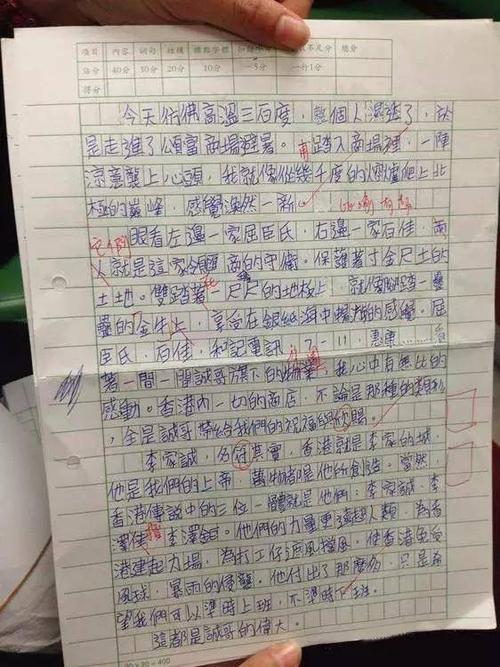 項目 內容 詞句 結構 標點字體 總分
佔分 40分 30分 20分 10分 -3分 一行1分
得分
今天彷佛高溫三百度，整個人濕透了，於
是走進了領富商場避暑。踏入商場裡，一陣
涼意襲上心頭，我就像從幾千度的火爐爬上北
極的巔峰，感覺煥然一新。
眼看左邊一家屈臣氏，右邊一家百佳，兩
人就是這家領富商的守衛。保護著寸金尺土的
土地。雙踏著一尺尺的地板上，就像腳踏一疊
疊的金牛上，享受在銀紙海中暢游的感覺。屈
臣氏，百佳，和記電訊，7-11，惠康……看
著一間一間誠哥旗下的物業，我心中有無比的
感動。香港內一切的商店，不論是那種的類別
，全是誠哥帶給我們的祝福與欣賜。
李家誠，名符其實，香港就是李家的城，
他是我們的上帝，萬物都是他所創造。當然，
香港傳說中的三位一體就是他們：李家誠，李
澤佳，李澤鉅。他們的力量更遠超人類，為香
港建起力場，為打工仔遮風擋風，使香港免受
風球，暴雨的侵襲。他付出了那麼多，只是希
望我們可以準時上班，不準時下班。
這都是誠哥的偉大。
20×20=400